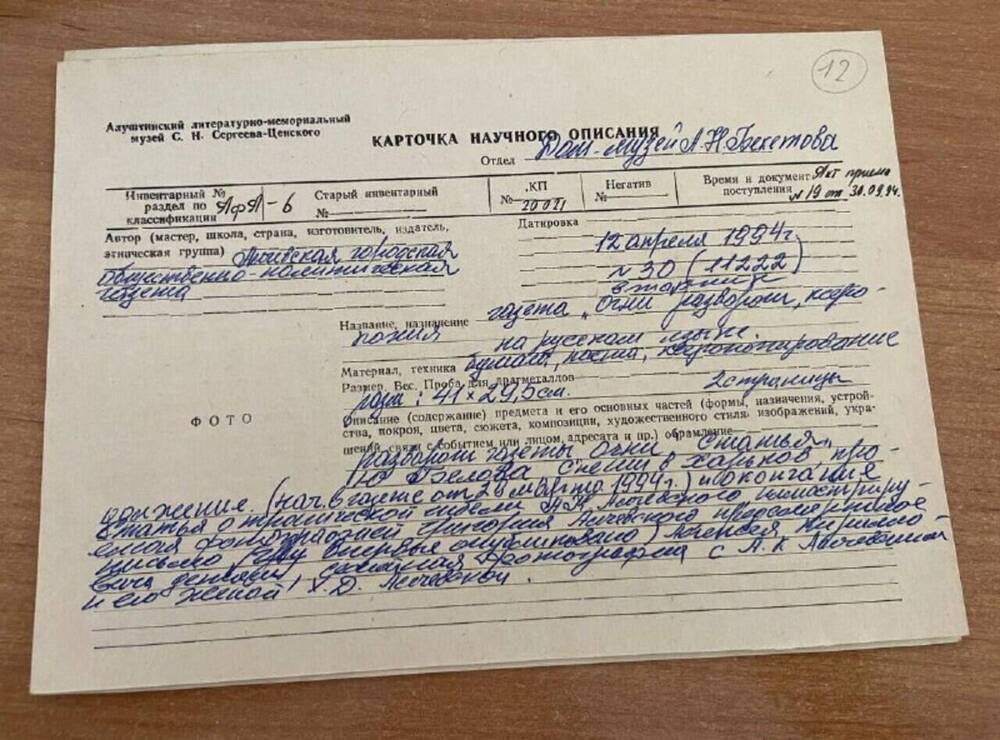 12
Алуштинский литературно-мемориальный
музей С. Н. Сергеева-Ценского
КАРТОЧКА НАУЧНОГО ОПИСАНИЯ
Отдел Дом-музей А.Н.Бекетова
Инвентарный №
раздел по
классификации АфА-6
Старый инвентарный
№
КП
№ 20021
Негатив
№
Время и документ Акт приема
поступления № 19 от 30.09.94.
Автор (мастер, школа, страна, изготовитель, издатель,
этническая группа) городская
общественно-политическая
газета
Датировка
12 апреля 1994г
№ 30 (11222)
вторник
Название, назначение газета „Огни разворот, ксеро-
копия на русском языке.
Материал, техника бумага, паста, ксерокопирование
Размер. Вес. Проба для драгметаллов 2 страницы
разм: 41×29,5см.
ФОТО
Описание (содержание) предмета и его основных частей (формы, назначения, устрой-
ства, покроя, цвета, сюжета, композиции, художественного стиля изображений, укра-
шений, связи с событием или лицом, адресата и пр.) обрамление
разворот газеты Огни Статья
Ю Белова Спеши в Харьков, про-
должение. (нач. в газете от 26 марта 1994г.) и окончания
статья о трагической гибели А.К. Алчевского, иллюстриру-
емая фотографией Григория Алчевского предсмертное
письмо впервые опубликовано) Алексея Кирилло-
вича фотография с А.К Алчевским
и его женой Х.Д. Алчевской.